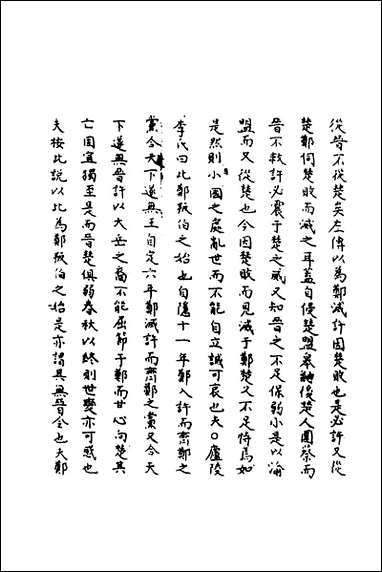 從晉不從楚矣左傳以為鄭滅許因楚敗也是必許又從
楚鄭伺楚敗而滅之耳蓋自侵楚盟皋鼬後楚人圍蔡而
晉不救許必震于楚之威又知晉之不足保弱小是以渝
盟而又從楚也今因楚敗而見滅于鄭楚又不足恃焉如
是然則小國之處亂世而不能自立誠可哀也夫○廬陵
李氏曰此鄭叛伯之始也自隱十一年鄭入許而齊鄭之
黨合天下遂無王自定六年鄭滅許而齊鄭之黨又合天
下遂無晉許以大岳之裔不能屈節于鄭而甘心向楚其
亡固宜獨至是而晉楚俱弱春秋以終則世變亦可感也
夫按此說以此為鄭叛伯之始是亦謂其無晉令也夫鄭